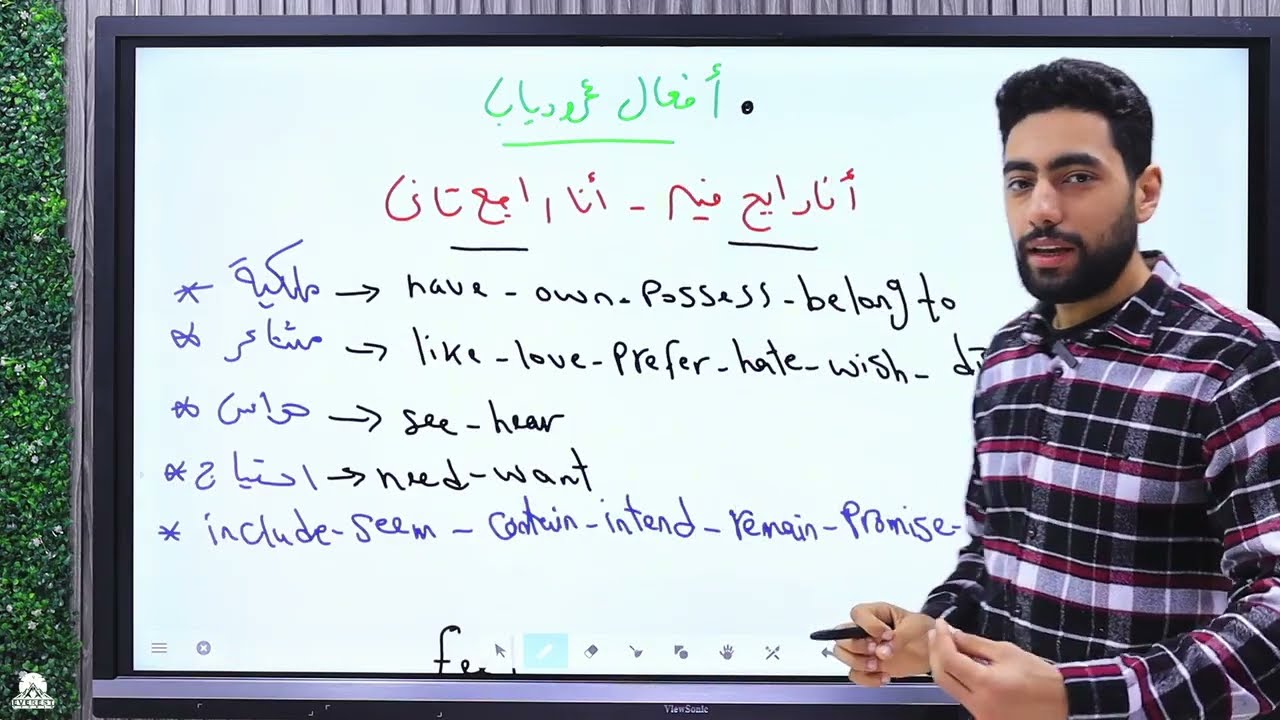 • أفعال عمرو دياب
أنا رايح فين - أنا راجع تانى
* ملكية → have - own - Possess - belong to
* مشاعر → like - love - Prefer - hate - wish -
* حواس → see - hear
* احتياج → need - want
* include - seem - contain - intend - remain - Promise -
ViewSonic
EVEREST